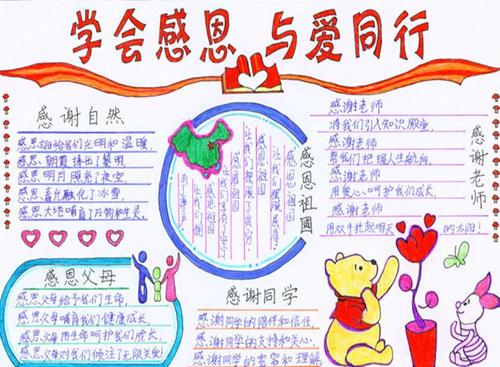 学会感恩 与爱同行
感谢自然
感恩朝霞捧出了黎明
感恩明月照亮了夜空
感恩春光融化了冰雪
感恩大地哺育了万物和生灵
感恩父母
感恩父母给予我们生命，
感恩父母哺育我们健康成长
感恩父母用生命呵护我们成长，
感恩父母对我们倾注了无限关爱！
感恩祖國
感谢老师
感谢老师
将我们引入知识殿堂，
感谢老师
帮我们把握人生航向，
感谢老师
用爱心呵护我们成长，
感谢老师
用双手托起明天 的太阳！
感谢同学
感谢同学的陪伴和信任，
感谢同学的支持和关心，
感谢同学的宽容和理解，